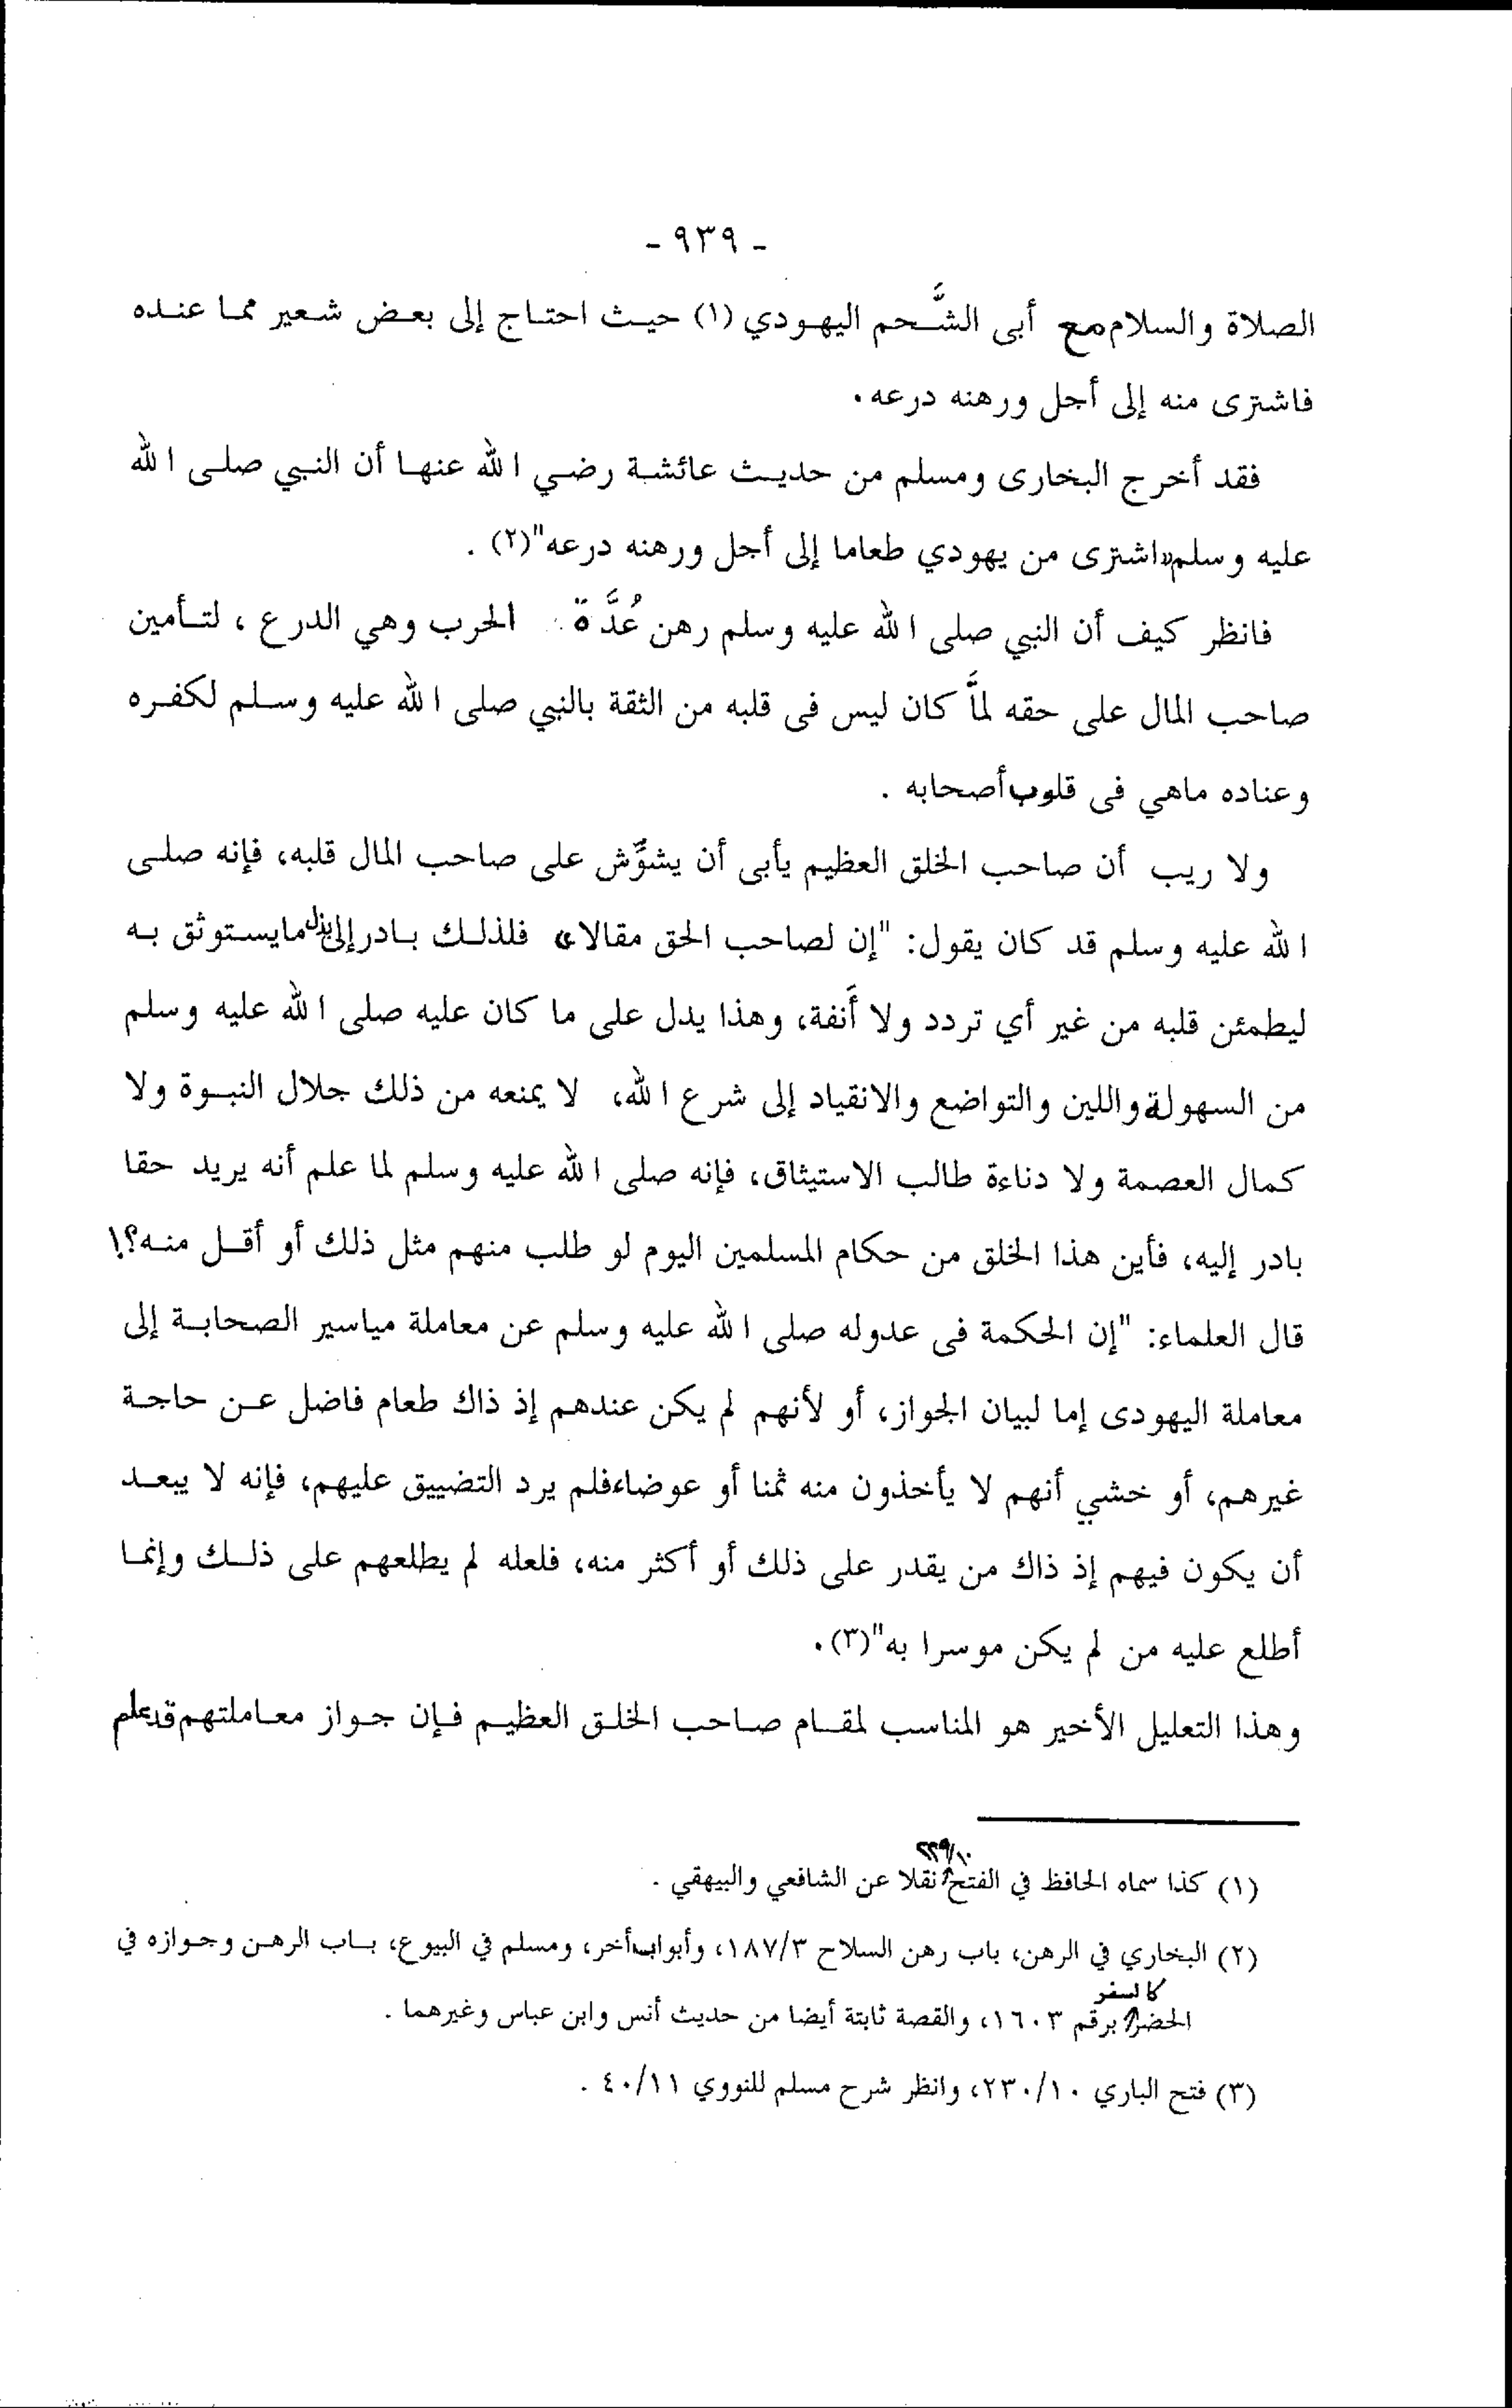 - ٩٣٩ -
الصلاة والسلام مع أبى الشَّحم اليهودي (١) حيث احتاج إلى بعض شعير مما عنده
فاشترى منه إلى أجل ورهنه درعه.
فقد أخرج البخارى ومسلم من حديث عائشة رضي الله عنها أن النبي صلى الله
عليه وسلم "اشترى من يهودي طعاما إلى أجل ورهنه درعه"(٢) .
فانظر كيف أن النبي صلى الله عليه وسلم رهن عُدَّة الحرب وهي الدرع ، لتأمين
صاحب المال على حقه لمَّا كان ليس فى قلبه من الثقة بالنبي صلى الله عليه وسلم لكفره
وعناده ماهي فى قلوب أصحابه .
ولا ريب أن صاحب الخلق العظيم يأبى أن يشوِّش على صاحب المال قلبه، فإنه صلى
الله عليه وسلم قد كان يقول: "إن لصاحب الحق مقالا" فلذلك بادر إلى بذل مايستوثق به
ليطمئن قلبه من غير أي تردد ولا أَنفة، وهذا يدل على ما كان عليه صلى الله عليه وسلم
من السهولة واللين والتواضع والانقياد إلى شرع الله، لا يمنعه من ذلك جلال النبوة ولا
كمال العصمة ولا دناءة طالب الاستيثاق، فإنه صلى الله عليه وسلم لما علم أنه يريد حقا
بادر إليه، فأين هذا الخلق من حكام المسلمين اليوم لو طلب منهم مثل ذلك أو أقل منه؟!
قال العلماء: "إن الحكمة فى عدوله صلى الله عليه وسلم عن معاملة مياسير الصحابة إلى
معاملة اليهودى إما لبيان الجواز، أو لأنهم لم يكن عندهم إذ ذاك طعام فاضل عن حاجة
غيرهم، أو خشي أنهم لا يأخذون منه ثمنا أو عوضا، فلم يرد التضييق عليهم، فإنه لا يبعد
أن يكون فيهم إذ ذاك من يقدر على ذلك أو أكثر منه، فلعله لم يطلعهم على ذلك وإنما
أطلع عليه من لم يكن موسرا به"(٣).
وهذا التعليل الأخير هو المناسب لمقام صاحب الخلق العظيم فإن جواز معاملتهم قد علم
(١) كذا سماه الحافظ في الفتح ٢٢٩/١٠ نقلا عن الشافعي والبيهقي .
(٢) البخاري في الرهن، باب رهن السلاح ١٨٧/٣، وأبواب أخر، ومسلم في البيوع، باب الرهن وجوازه في
الحضر كالسفر برقم ١٦٠٣، والقصة ثابتة أيضا من حديث أنس وابن عباس وغيرهما .
(٣) فتح الباري ٢٣٠/١٠، وانظر شرح مسلم للنووي ٤٠/١١ .